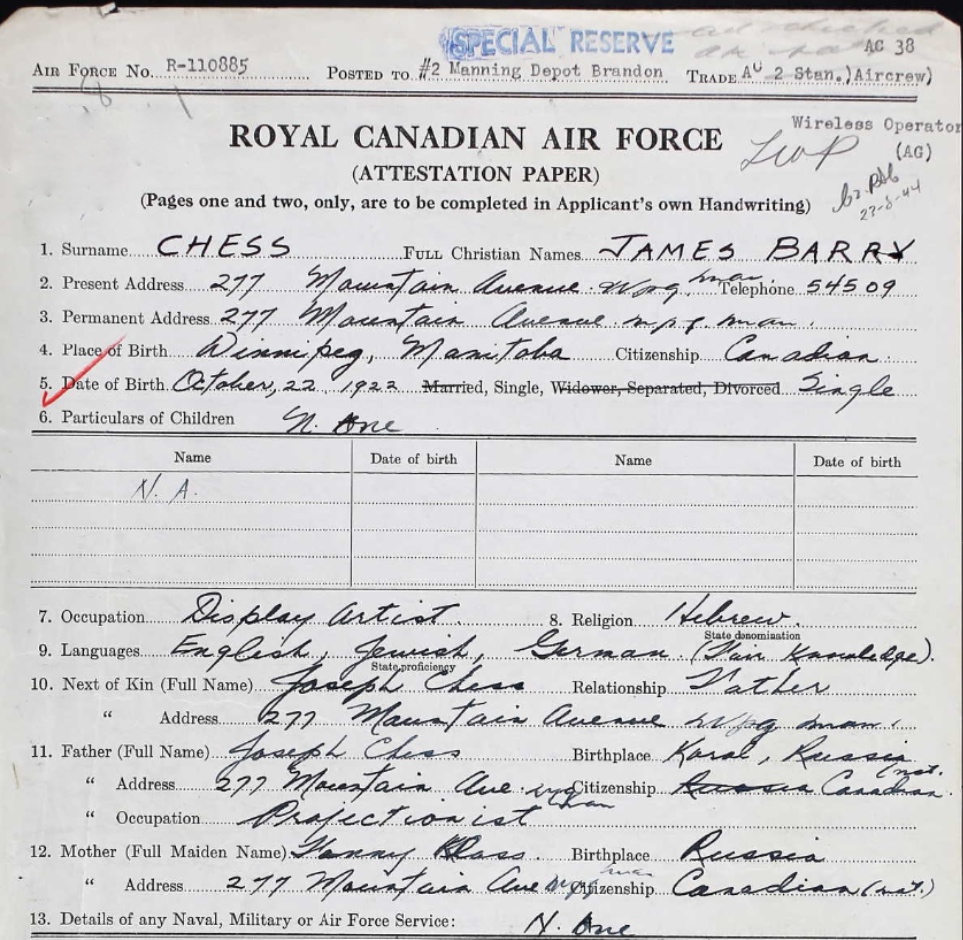 SPECIAL RESERVE
AC 38
AIR FORCE NO. R-110885 POSTED TO #2 Manning Depot Brandon TRADE AC 2 Stan.)Aircrew)
Wireless Operator
(AG)
ROYAL CANADIAN AIR FORCE
(ATTESTATION PAPER)
23-8-44
(Pages one and two, only, are to be completed in Applicant's own Handwriting)
1. Surname CHESS FULL Christian Names JAMES BARRY
2. Present Address 277 Mountain Avenue Wpg. Man Telephone 54509
3. Permanent Address 277 Mountain Avenue Wpg. Man.
4. Place of Birth Winnipeg, Manitoba Citizenship Canadian.
5. Date of Birth October, 22, 1922 Married, Single, Widower, Separated, Divorced Single
6. Particulars of Children N. One
Name Date of birth Name Date of birth
N. A.
7. Occupation Display Artist. 8. Religion Hebrew.
State denomination
9. Languages English, Jewish, German (Fair Knowledge).
State proficiency
10. Next of Kin (Full Name) Joseph Chess Relationship Father
" Address 277 Mountain Avenue Wpg Man.
11. Father (Full Name) Joseph Chess Birthplace Karal, Russia
" Address 277 Mountain Ave Wpg Man Citizenship Russia Canadian (nat.
" Occupation Projectionist
12. Mother (Full Maiden Name) Fanny Klass. Birthplace Russia
" Address 277 Mountain Ave Wpg Man Citizenship Canadian (nat.)
13. Details of any Naval, Military or Air Force Service: N. One